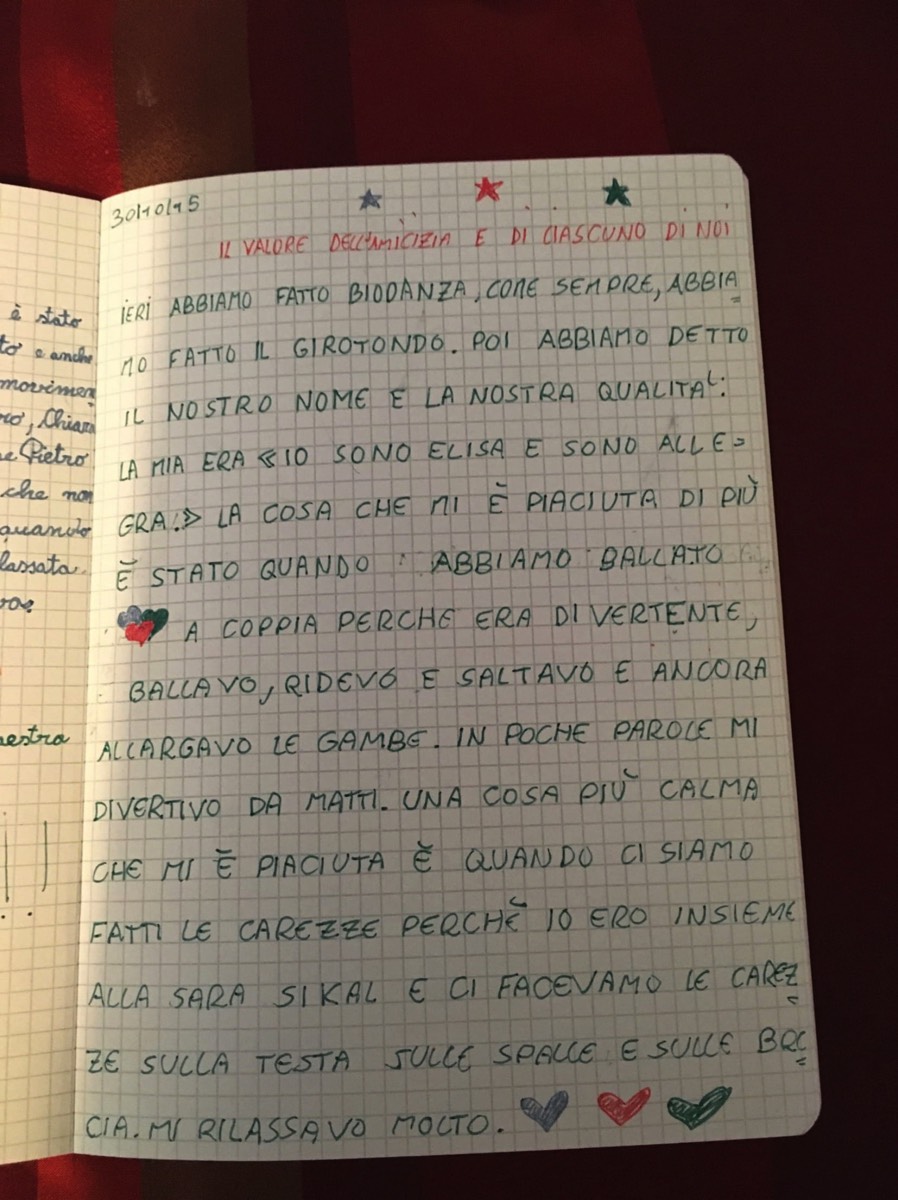 è stato
to e anche
movimen
ro, Chiara
e Pietro
che non
quando
lassata.
estra
30/10/15
IL VALORE DELL'AMICIZIA E DI CIASCUNO DI NOI
IERI ABBIAMO FATTO BIODANZA, COME SEMPRE, ABBIA=
MO FATTO IL GIROTONDO. POI ABBIAMO DETTO
IL NOSTRO NOME E LA NOSTRA QUALITA':
LA MIA ERA «IO SONO ELISA E SONO ALLE=
GRA.» LA COSA CHE MI È PIACIUTA DI PIÙ
È STATO QUANDO ABBIAMO BALLATO
A COPPIA PERCHE ERA DIVERTENTE,
BALLAVO, RIDEVO E SALTAVO E ANCORA
ALLARGAVO LE GAMBE. IN POCHE PAROLE MI
DIVERTIVO DA MATTI. UNA COSA PIÙ CALMA
CHE MI È PIACIUTA È QUANDO CI SIAMO
FATTI LE CAREZZE PERCHÈ IO ERO INSIEME
ALLA SARA SIKAL E CI FACEVAMO LE CAREZ=
ZE SULLA TESTA SULLE SPALLE E SULLE
CIA. MI RILASSAVO MOLTO.